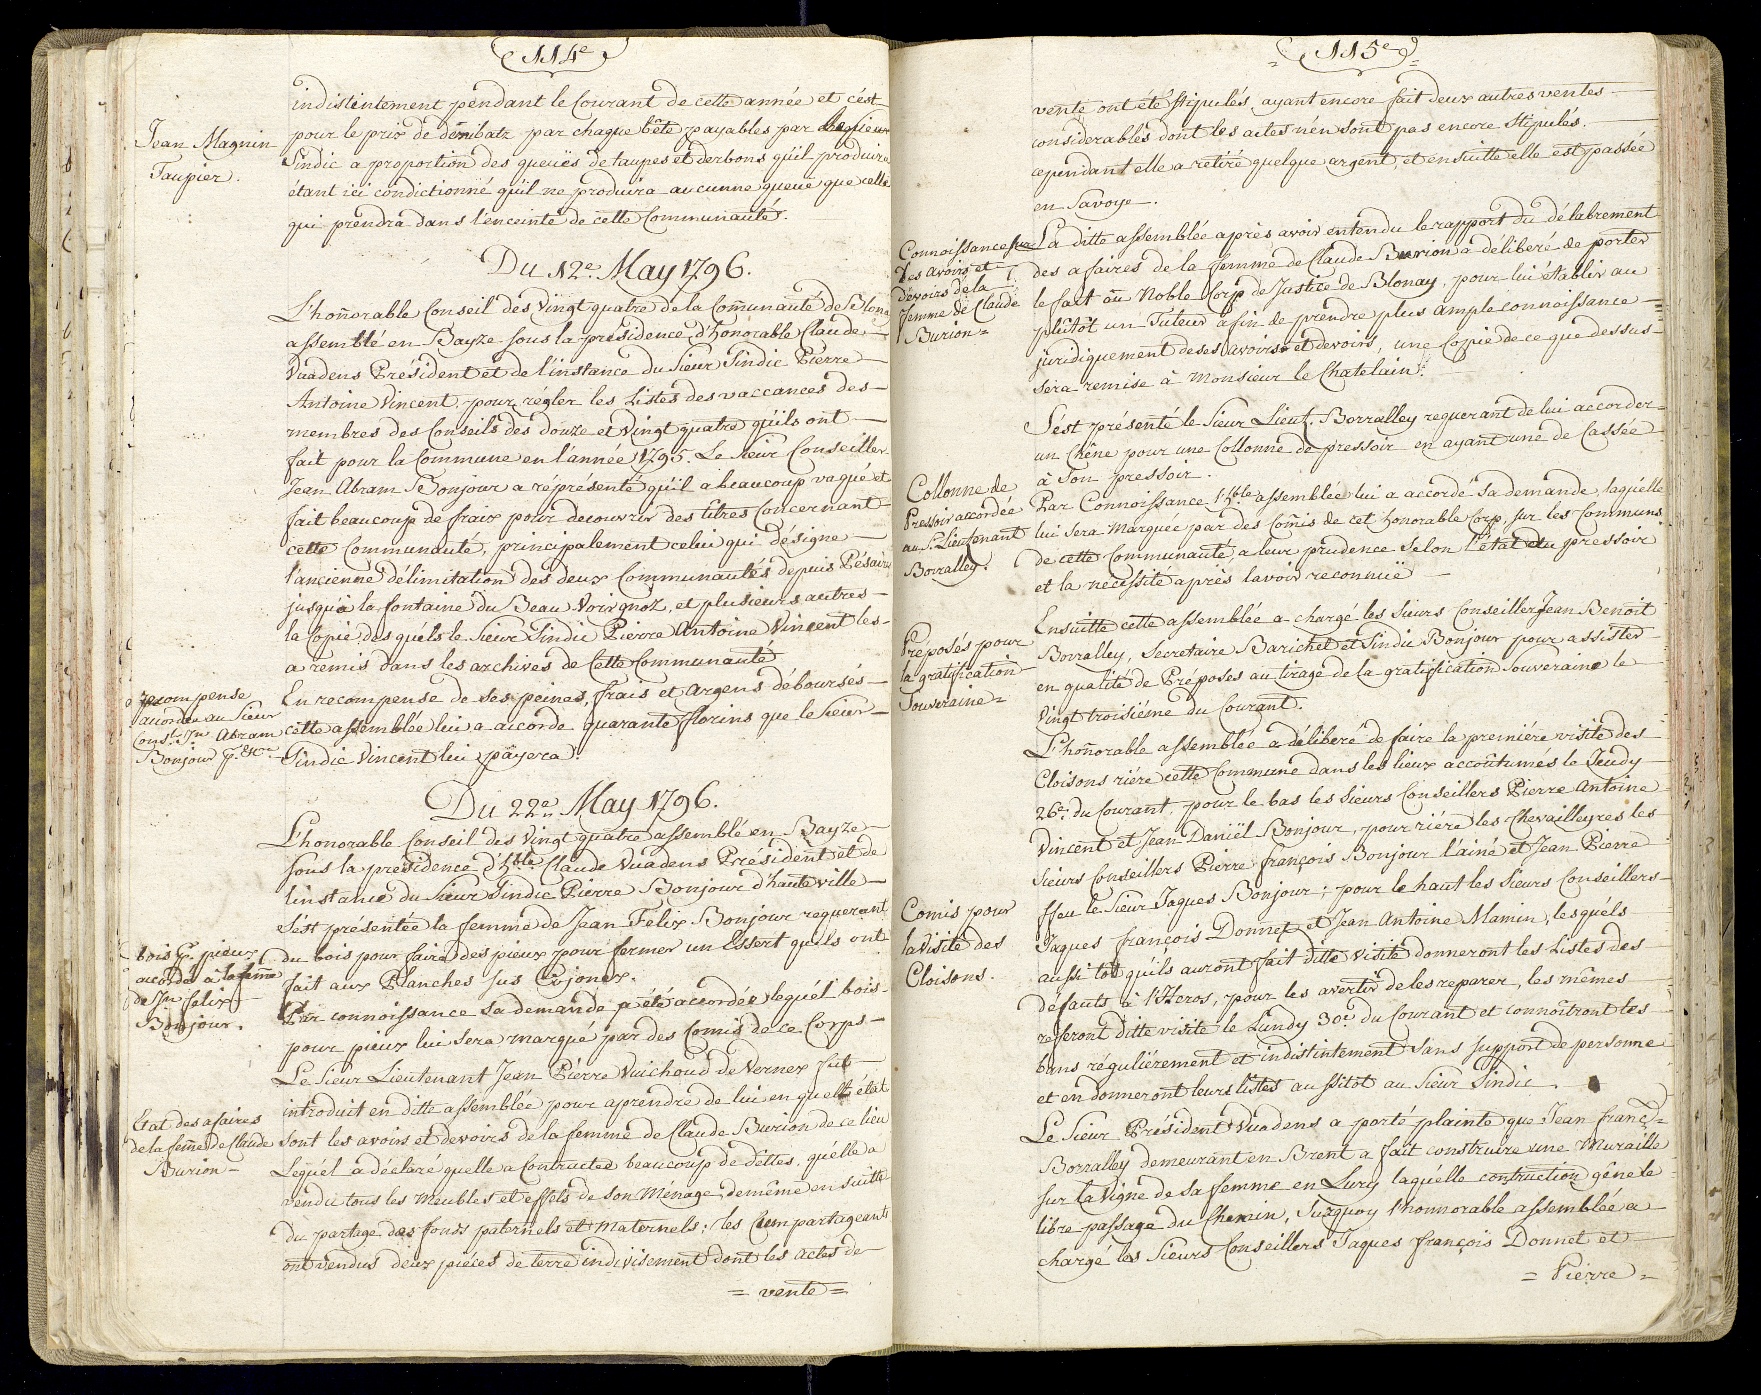 114e
indistintement pendant le Courant de cette année et c'ést
Jean Magnin
Taupier.
pour le prix de demibatz par chaque bête payables par le Sieur
Sindic a proportion des queuës de taupes et derbons qu'il produira
étant ici condictionné qu'il ne produira aucunne queue que celle
qui prendra dans l'enceinte de cette Communautés.
Du 12e. May 1796.
L'honorable Conseil des Vingt quatre de la Comunauté de Blona
assemblé en Bayze sous la présidence d'honorable Claude
Vuadens Président et de l'instance du Sieur Sindic Pierre
Antoine Vincent, pour régler les Listes des vaccances des
membres des Conseils des douze et Vingt quatre qu'ils ont
fait pour la Commune en l'année 1795. Le Sieur Conseiller
Jean Abram Bonjour a répresenté qu'il a beaucoup vagué et
fait beaucoup de fraix pour decouvrir des titres Concernant
cette Communauté, principalement celui qui designe
l'ancienne délimitation des deux Communautés depuis Pésaire
jusqu'à la fontaine du Beau Voirgnoz, et plusieurs autres
la Copie des quéls le Sieur Sindic Pierre Antoine Vincent les
a remis dans les archives de Cette Communauté
recompense
accordée au Sieur
Conslr. Jn Abram
Bonjour
En recompense de ses peines, frais et argens déboursés
cette assemblée lui a accordé quarante florins que le Sieur
Sindic Vincent lui payera.
Du 22e. May 1796.
L'honorable Conseil des Vingt quatre assemblé en Bayze
sous la présidence d'hble. Claude Vuadens Président et de
linstance du Sieur Sindic Pierre Bonjour d'hauteville
S'ést présentée la femme de Jean Felix Bonjour requerant
bois p. pieux
accordé à la feme
de Jn felix
Bonjour.
du bois pour faire des pieux pour fermer un Essert qu'ils ont
fait aux Planches sus Cojonex.
Par connoissance sa demande a été accordée lequél bois
pour pieux lui sera marqué par des Comis de ce Corps
Le Sieur Lieutenant Jean Piérre Vuichoud de Vernex fut
introduit en ditte assemblée pour aprendre de lui en quelle état
Etat des afaires
de la feme de Claude
Burion
sont les avoirs et devoirs de la femme de Claude Burion de ce lieu
Lequél a déclaré quelle a Contractée beaucoup de dêttes, quélle a
vendu tous les meubles et effets de son Ménage, demême ensuitte
du partage des fonds paternels et maternels; les Compartageants
ont vendus deux piéces de terre indivisement dont les actes de
= vente =
115e
vente ont été stipulés, ayant encore fait deux autres ventes
considerables dont les actes n'en sont pas encore stipulés.
cependant elle a retiré quelque argent, et ensuitte elle est passée
en Savoye.
Connoissance sur
les avoirs et
devoirs de la
femme de Claude
Burion =
La ditte assemblée après avoir entendu le rapport du délabrement
des afaires de la femme de Claude Burion a déliberé de porter
le fait au Noble Corp de Justice de Blonay, pour lui établir au
plûtôt un Tuteur afin de prendre plus ample connoissance
juridiquement de ses avoirs et devoirs, une Copie de ce que dessus
sera remise à Monsieur le Chatelain.
S'ést présenté le Sieur Lieut. Borralley requerant de lui accorder
un Chêne pour une Collonne de pressoir en ayant une de Cassée
à Son pressoir.
Collonne de
Pressoir accordée
au S. Lieutenant
Borralley.
Par Connoissance l'hble assemblée lui a accordé sa demande, laquélle
lui sera Marquée par des Comis de cet honorable Corp, sur les Communs
de cette Communauté, a leur prudence selon l'état du pressoir
et la necessité après lavoir reconnuë
Préposés pour
la gratification
Souveraine =
Ensuitte cette assemblée a chargé les Sieurs Conseiller Jean Benoit
Borralley, Secretaire Barichet et Sindic Bonjour pour assister
en qualité de Préposés au tirage de la gratification Souveraine le
Vingt troisiéme du Courant.
L'honorable assemblée a déliberé de faire la premiére visite des
Cloisons riére cette Commune dans les lieux accoûtumés le Jeudy
26e. du Courant, pour le bas les Sieurs Conseillers Pierre Antoine
Vincent et Jean Daniël Bonjour, pour riére les Chevailleyres les
Sieurs Conseillers Pierre françois Bonjour l'ainé et Jean Pierre
Comis pour
la visite des
Cloisons.
ffeu le Sieur Jaques Bonjour; pour le haut les Sieurs Conseillers
Jaques françois Donnet et Jean Antoine Mamin, lesquéls
aussi tôt qu'ils auront fait ditte Visite donneront les Listes des
défauts à l'Heros, pour les avertir de les reparer, les mêmes
referont ditte visite le Lundy 30e. du Courant et connoîtront les
bans réguliérement et indistintement sans support de personne
et en donneront leurs listes aussitôt au Sieur Sindic.
Le Sieur Président Vuadens a porté plainte que Jean franç.
Borralley demeurant en Brent a fait construire une Muraille
sur la Vigne de sa femme en Lury laquélle contruction gêne le
libre passage du Chemin, Surquoy l'honnorable assemblée a
chargé les Sieurs Conseillers Jaques françois Donnet et
= Pierre =